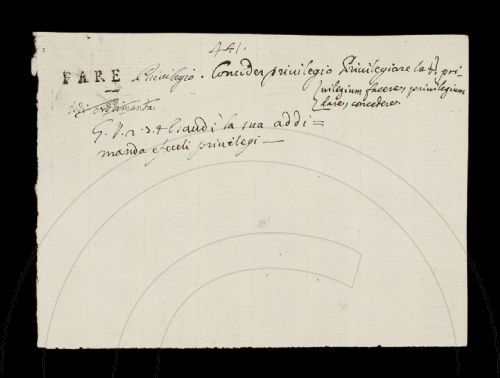 441.
FARE Privilegio. Conceder privilegio Privilegiare lat. pri-
vilegium facere, privilegium
dare, concedere.
G. V. 2. 3. esaudì la sua addi=
manda e feceli privilegi —